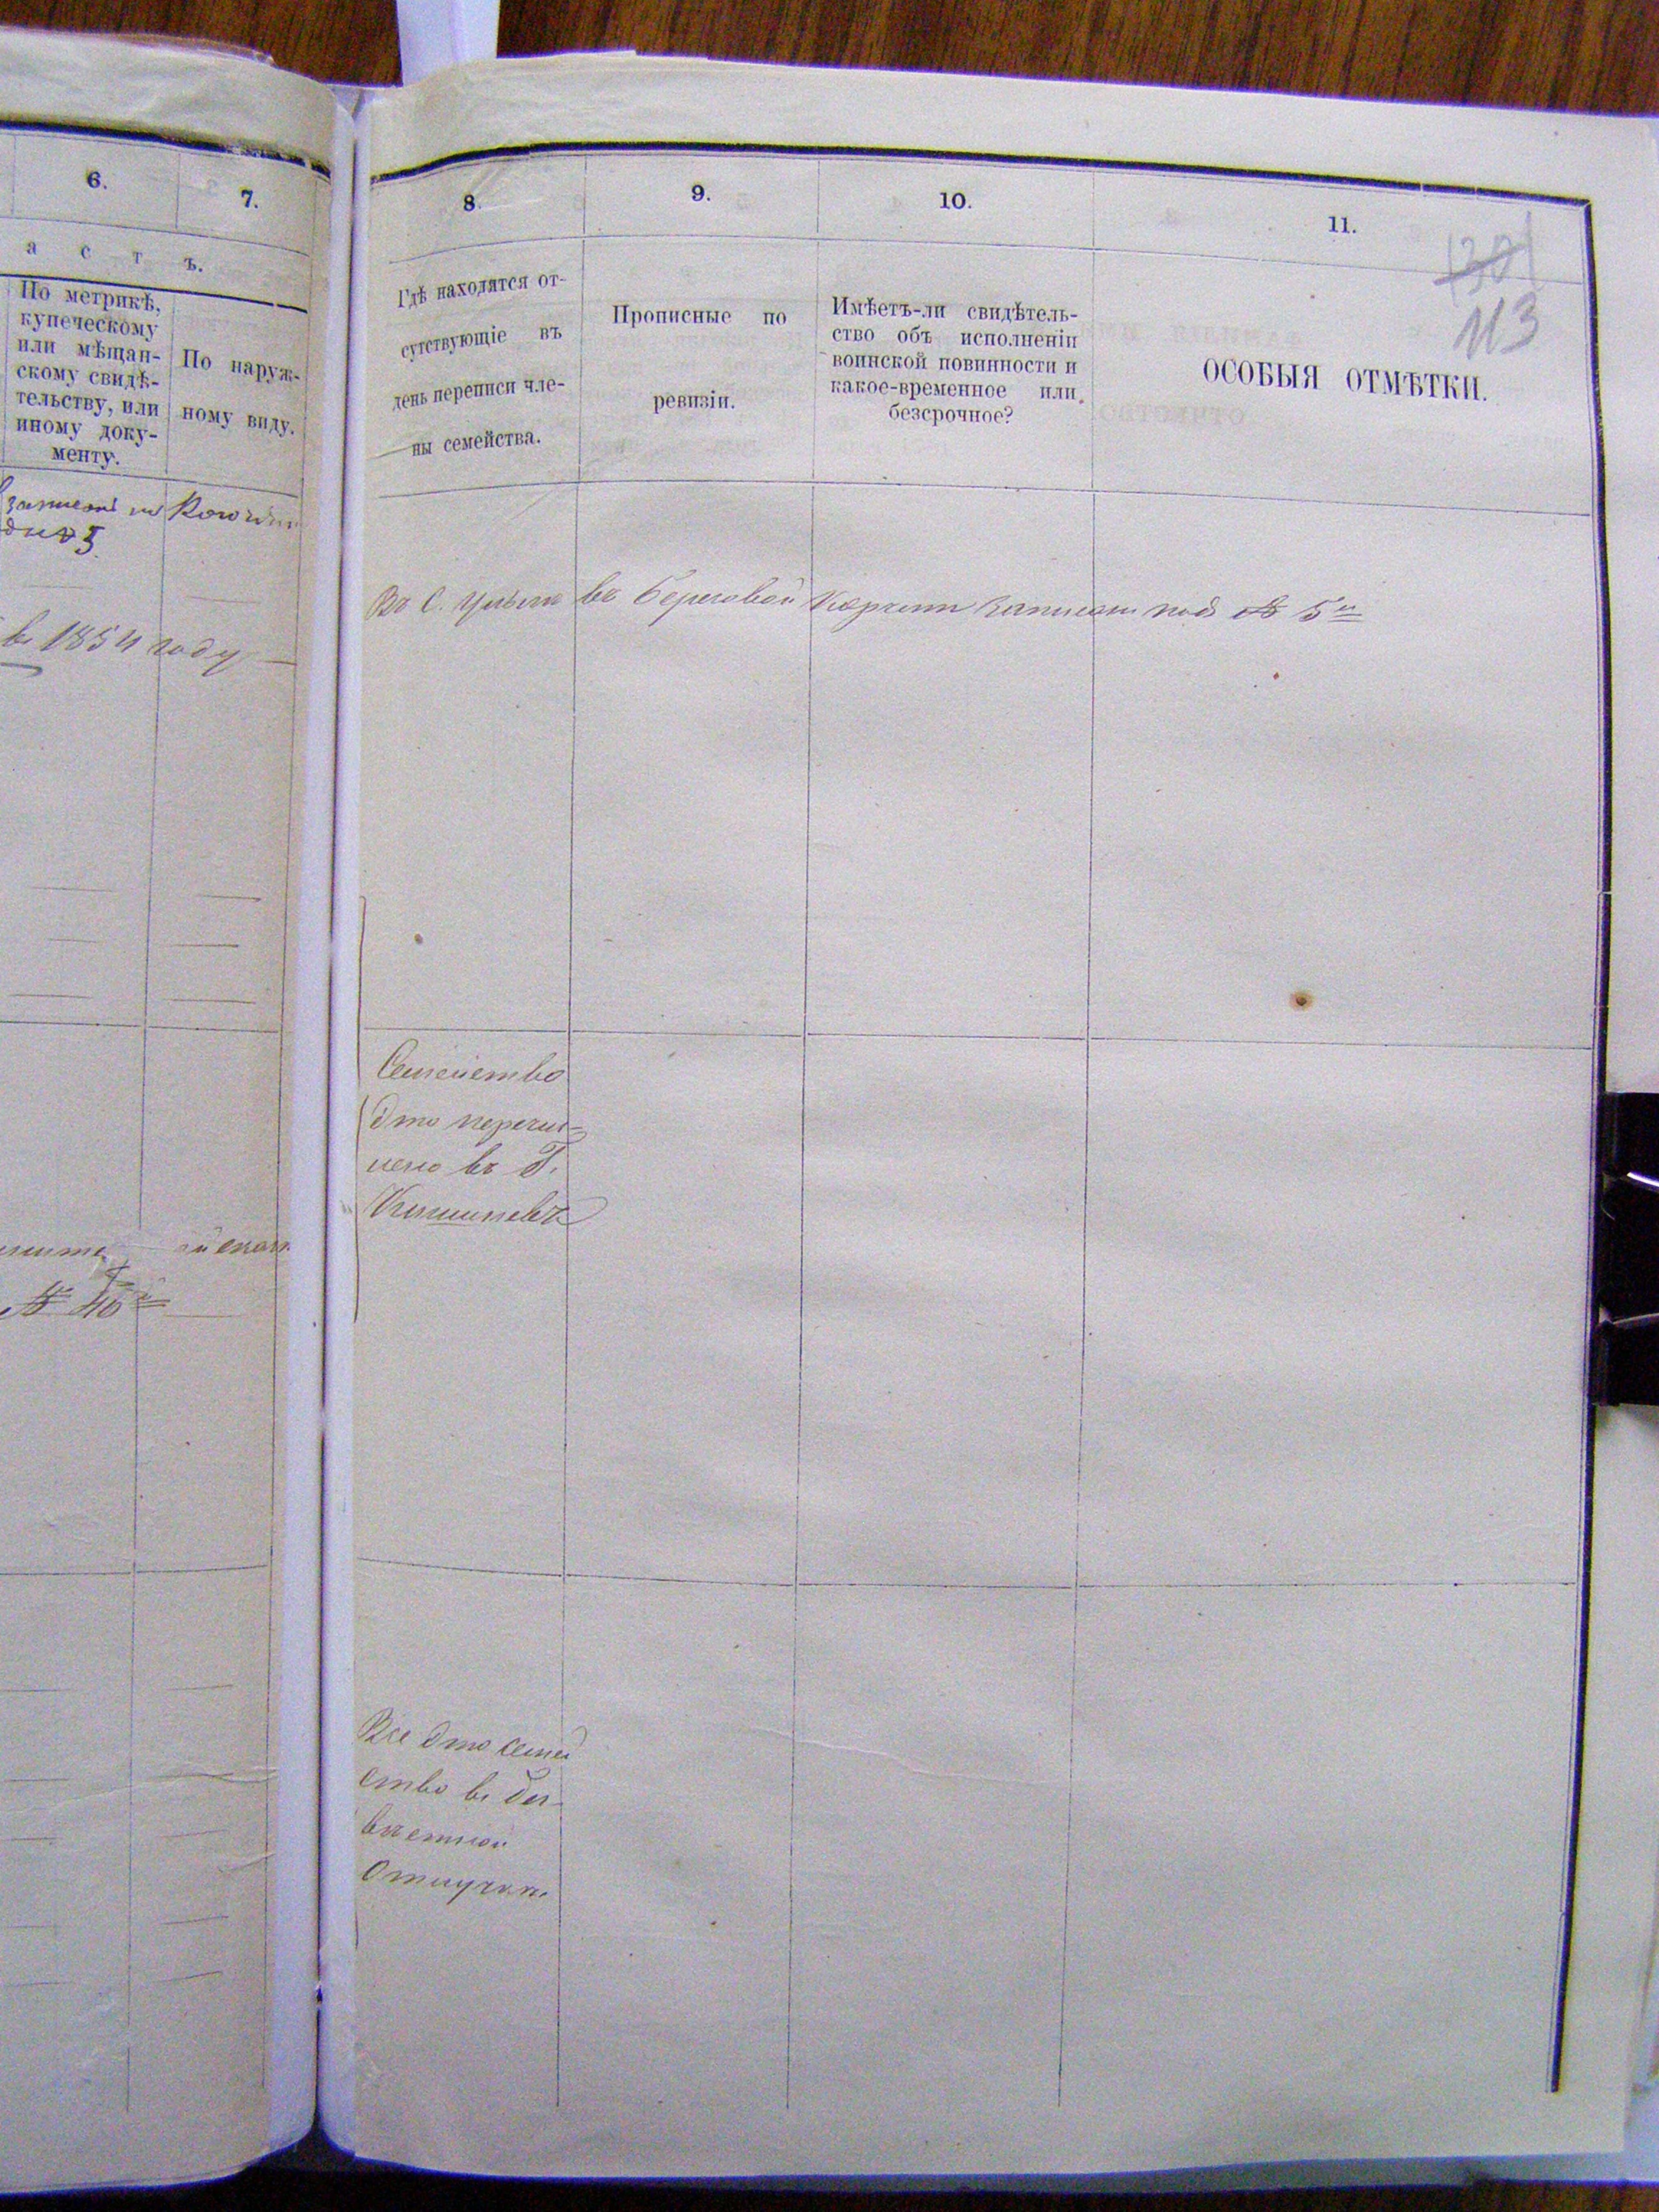 6.
7.
а с т ъ.
По метрикѣ,
купеческому
или мѣщан-
скому свидѣ-
тельству, или
иному доку-
менту.
По наруж-
ному виду.
въ 1854 году
№ 46
8.
9.
10.
11.
113
Гдѣ находятся от-
сутствующіе въ
день переписи чле-
ны семейства.
Прописные по
ревизіи.
Имѣетъ-ли свидѣтель-
ство объ исполненіи
воинской повинности и
какое-временное или
безсрочное?
ОСОБЫЯ ОТМѢТКИ.
Въ С. въ береговой записан подъ № 5й
Семейство
это перечис-
лено въ Г.
Кишиневъ
Все это семей
ство въ без-
вѣстной
Отлучкѣ